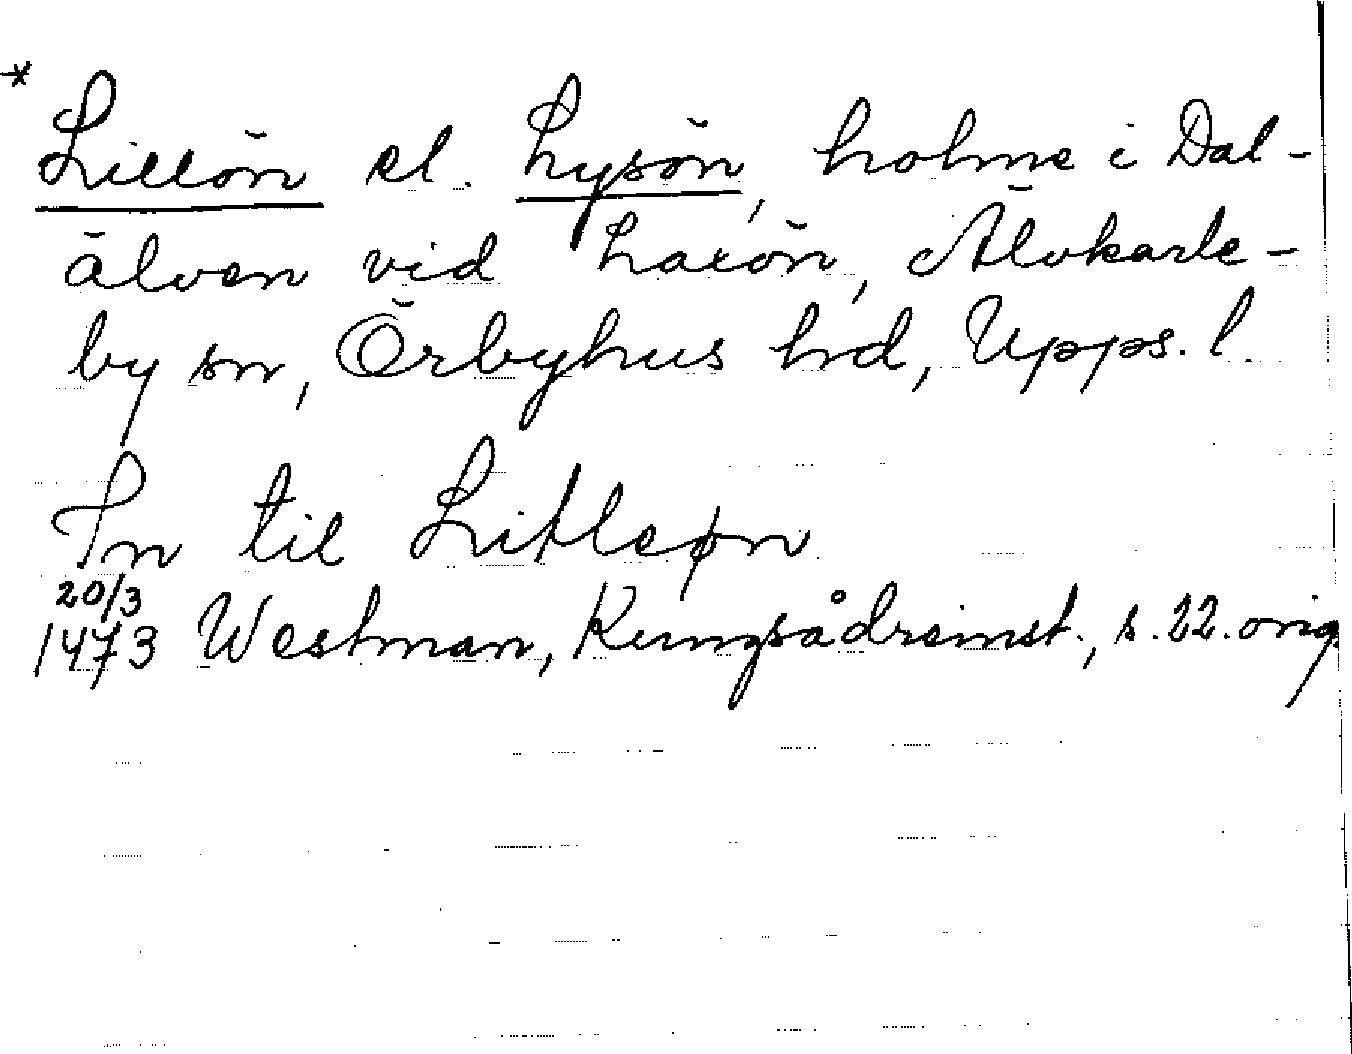 * Lillön el. Lysön, holme i Dal-
älven vid Laxön, Älvkarle-
by sn, Örbyhus hd, Upps. l.
In til Litleøn
20/3
1473 Westman, Kungsådreinst., s. 22. orig.